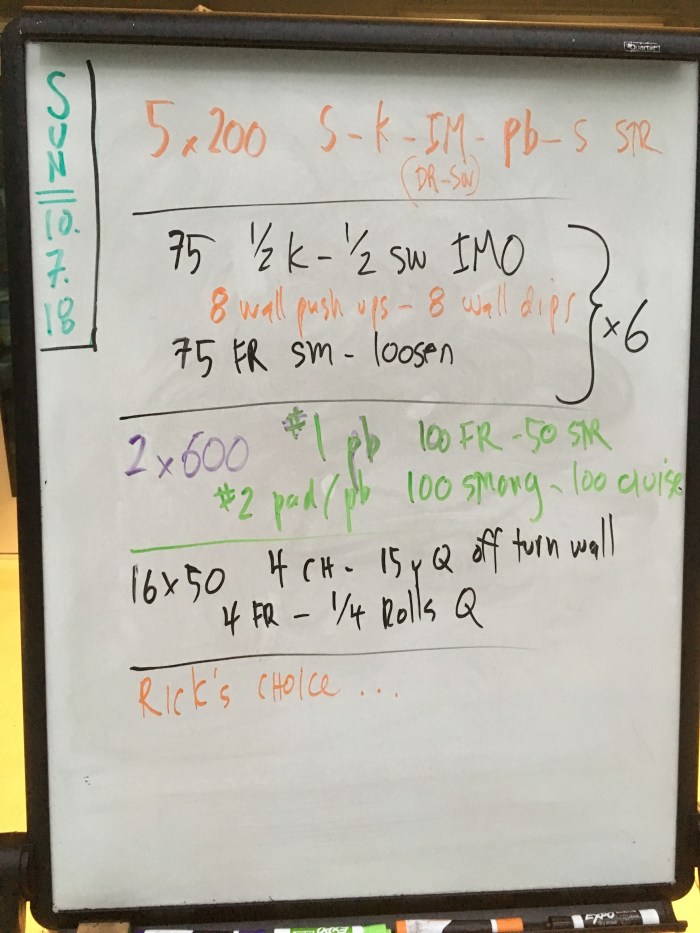 SUN 10.7.18
5x200 S-K-IM-pb-S STR
(DR-SW)
75 ½ K - ½ SW IMO
8 wall push ups - 8 wall dips
75 FR sm - loosen
} x6
2x600 #1 pb 100 FR - 50 STR
#2 pad/pb 100 strong - 100 cruise
16x50 4 CH - 15y Q off turn wall
4 FR - 1/4 Rolls Q
Rick's CHOICE ...
Quartet
EXPO
EXPO